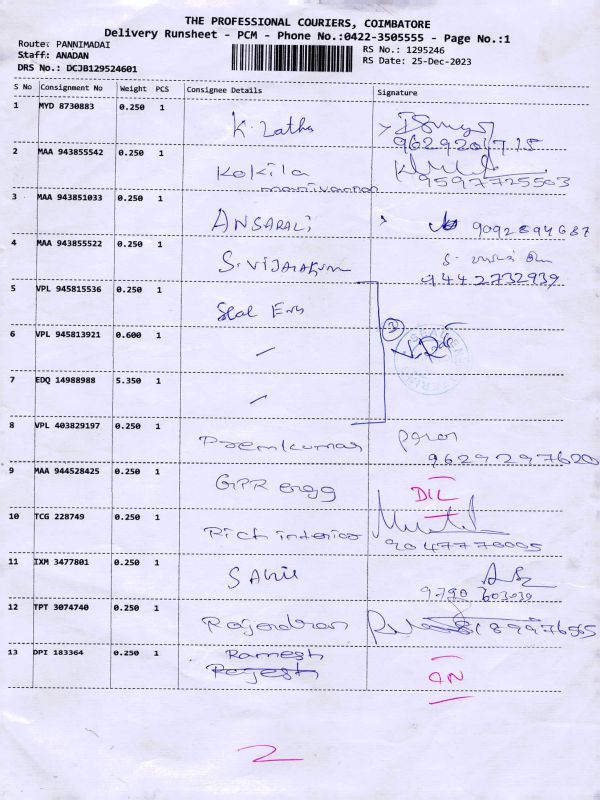 THE PROFESSIONAL COURIERS, COIMBATORE
Delivery Runsheet - PCM - Phone No.:0422-3505555 - Page No.:1
Route: PANNIMADAI
RS No.: 1295246
Staff: ANADAN
RS Date: 25-Dec-2023
DRS No.: DCJB129524601
S No Consignment No Weight PCS Consignee Details Signature
1 MYD 8730883 0.250 1
K. Latha
9629201715
2 MAA 943855542 0.250 1
Kokila
manivannan 9597725503
3 MAA 943851033 0.250 1
ANSARALi 9092894687
4 MAA 943855522 0.250 1
S. VIJAYAKUM
9442732939
5 VPL 945815536 0.250 1
Seal Ens
6 VPL 945813921 0.600 1
3
7 EDQ 14988988 5.350 1
8 VPL 403829197 0.250 1
Premkumar
9629297620
9 MAA 944528425 0.250 1
GPR engg DIL
10 TCG 228749 0.250 1
Rich interior
9047770005
11 IXM 3477801 0.250 1
9790 603039
12 TPT 3074740 0.250 1
Rajendran
13 DPI 183364 0.250 1
Ramesh
Rajesh
2